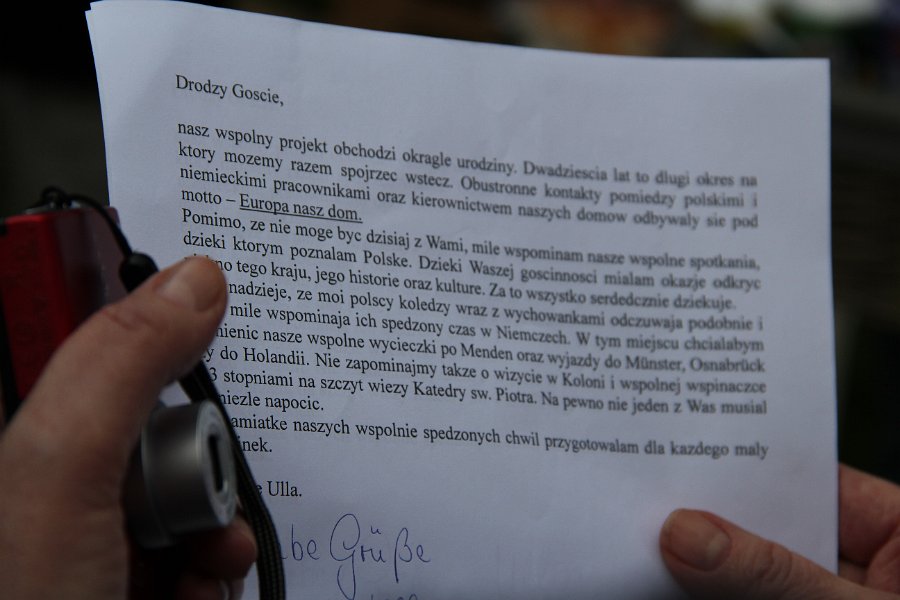 Drodzy Goscie,
nasz wspolny projekt obchodzi okragle urodziny. Dwadziescia lat to dlugi okres na
ktory mozemy razem spojrzec wstecz. Obustronne kontakty pomiedzy polskimi i
niemieckimi pracownikami oraz kierownictwem naszych domow odbywaly sie pod
motto – Europa nasz dom.
Pomimo, ze nie moge byc dzisiaj z Wami, mile wspominam nasze wspolne spotkania,
dzieki ktorym poznalam Polske. Dzieki Waszej goscinnosci mialam okazje odkryc
tego kraju, jego historie oraz kulture. Za to wszystko serdedcznie dziekuje.
nadzieje, ze moi polscy koledzy wraz z wychowankami odczuwaja podobnie i
mile wspominaja ich spedzony czas w Niemczech. W tym miejscu chcialabym
mienic nasze wspolne wycieczki po Menden oraz wyjazdy do Münster, Osnabrück
do Holandii. Nie zapominajmy takze o wizycie w Koloni i wspolnej wspinaczce
3 stopniami na szczyt wiezy Katedry sw. Piotra. Na pewno nie jeden z Was musial
niezle napocic.
amiatke naszych wspolnie spedzonych chwil przygotowalam dla kazdego maly
inek.
Ulla.
be Grüße